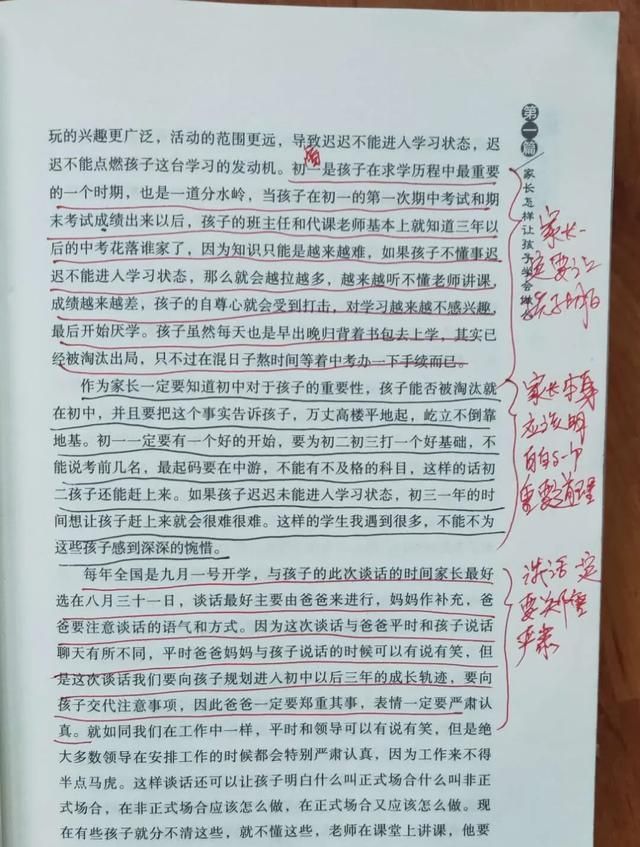 玩的兴趣更广泛，活动的范围更远，导致迟迟不能进入学习状态，迟
迟不能点燃孩子这台学习的发动机。初一是孩子在求学历程中最重要
的一个时期，也是一道分水岭，当孩子在初一的第一次期中考试和期
末考试成绩出来以后，孩子的班主任和代课老师基本上就知道三年以
后的中考花落谁家了，因为知识只能是越来越难，如果孩子不懂事迟
迟不能进入学习状态，那么就会越拉越多，越来越听不懂老师讲课，
成绩越来越差，孩子的自尊心就会受到打击，对学习越来越不感兴趣，
最后开始厌学。孩子虽然每天也是早出晚归背着书包去上学，其实已
经被淘汰出局，只不过在混日子熬时间等着中考办一下手续而已。
作为家长一定要知道初中对于孩子的重要性，孩子能否被淘汰就
在初中，并且要把这个事实告诉孩子，万丈高楼平地起，屹立不倒靠
地基。初一一定要有一个好的开始，要为初二初三打一个好基础，不
能说考前几名，最起码要在中游，不能有不及格的科目，这样的话初
二孩子还能赶上来。如果孩子迟迟未能进入学习状态，初三一年的时
间想让孩子赶上来就会很难很难。这样的学生我遇到很多，不能不为
这些孩子感到深深的惋惜。
每年全国是九月一号开学，与孩子的此次谈话的时间家长最好
选在八月三十一日，谈话最好主要由爸爸来进行，妈妈作补充，爸
爸要注意谈话的语气和方式。因为这次谈话与爸爸平时和孩子说话
聊天有所不同，平时爸爸妈妈与孩子说话的时候可以有说有笑，但
是这次谈话我们要向孩子规划进入初中以后三年的成长轨迹，要向
孩子交代注意事项，因此爸爸一定要郑重其事，表情一定要严肃认
真。就如同我们在工作中一样，平时和领导可以有说有笑，但是绝
大多数领导在安排工作的时候都会特别严肃认真，因为工作来不得
半点马虎。这样谈话还可以让孩子明白什么叫正式场合什么叫非正
式场合，在非正式场合应该怎么做，在正式场合又应该怎么做。现
在有些孩子就分不清这些，就不懂这些，老师在课堂上讲课，他要
第一篇
家长怎样让孩子学会
家长一
定要让
孩子
家长本身
应该明
白这一个
重要道理
谈话一定
要郑重
严肃